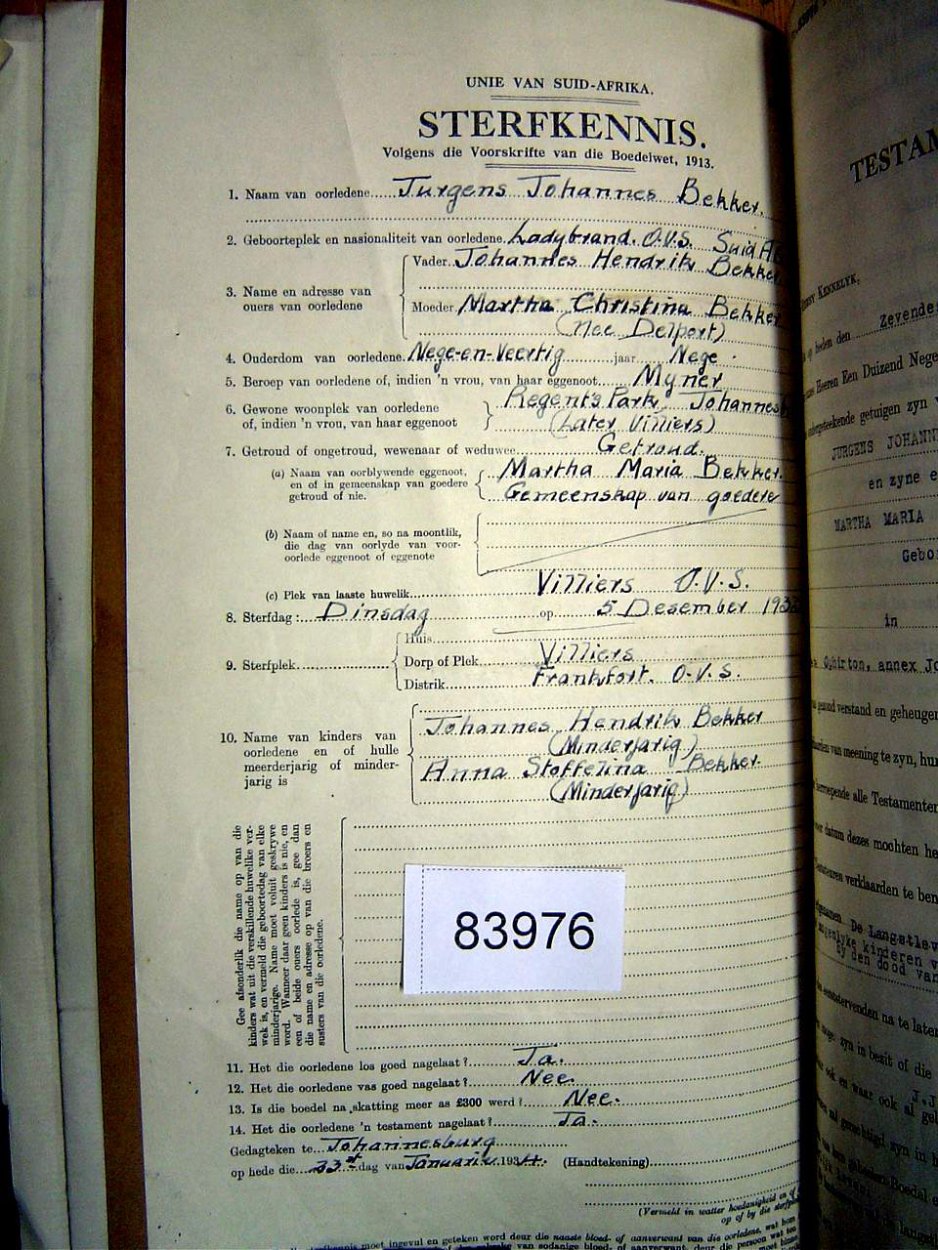 UNIE VAN SUID-AFRIKA.
STERFKENNIS.
Volgens die Voorskrifte van die Boedelwet, 1913.
1. Naam van oorledene Jurgens Johannes Bekker.
2. Geboorteplek en nasionaliteit van oorledene. Ladybrand. O.V.S. Suid Af
3. Name en adresse van ouers van oorledene
Vader Johannes Hendrik Bekker
Moeder Martha Christina Bekker
(nee Delport)
4. Ouderdom van oorledene. Nege-en-Veertig jaar Nege
5. Beroep van oorledene of, indien 'n vrou, van haar eggenoot Myner
6. Gewone woonplek van oorledene of, indien 'n vrou, van haar eggenoot
Regent's Park, Johannes
(Later Villiers)
7. Getroud of ongetroud, wewenaar of weduwee Getroud.
(a) Naam van oorblywende eggenoot,
en of in gemeenskap van goedere
getroud of nie.
Martha Maria Bekker.
Gemeenskap van goedere
(b) Naam of name en, so na moontlik,
die dag van oorlyde van voor-
oorlede eggenoot of eggenote
(c) Plek van laaste huwelik Villiers O.V.S.
8. Sterfdag: Dinsdag op 5 Desember 193
9. Sterfplek
Huis
Dorp of Plek Villiers
Distrik Frankfort. O.V.S.
10. Name van kinders van
oorledene en of hulle
meerderjarig of minder-
jarig is
Johannes Hendrik Bekker
(Minderjarig)
Anna Stoffelina Bekker.
(Minderjarig)
Gee afsonderlik die name op van die
kinders wat uit die verskillende huwelike ver-
wek is, en vermeld die geboortedag van elke
minderjarige. Name moet voluit geskrywe
word. Wanneer daar geen kinders is nie, en
een of beide ouers oorlede is, gee dan
die name en adresse op van die broers en
susters van die oorledene.
83976
11. Het die oorledene los goed nagelaat? Ja.
12. Het die oorledene vas goed nagelaat? Nee.
13. Is die boedel na skatting meer as £300 werd? Nee.
14. Het die oorledene 'n testament nagelaat? Ja.
Gedagteken te Johannesburg
op hede die dag van Januarie 1934. (Handtekening)
(Vermeld in watter hoedanigheid en of
op of by die sterfplek
moet ingevul en geteken word deur die naaste bloed- of aanverwant van die oorledene, wat
TESTAM
KENNELYK,
heden den Zevende
Heeren Een Duizend Nege
getuigen zyn
JURGENS JOHANN
en zyne e
MARTHA MARIA
Gebo
in
Ophirton, annex Jo
verstand en geheugen
van meening te zyn, hun
alle Testamenten
datum dezes mochten he
verklaarden te ben
De Langstlev
kinderen v
by den dood van
na te laten
zyn in bezit of die
en waar ook al gel
J.J